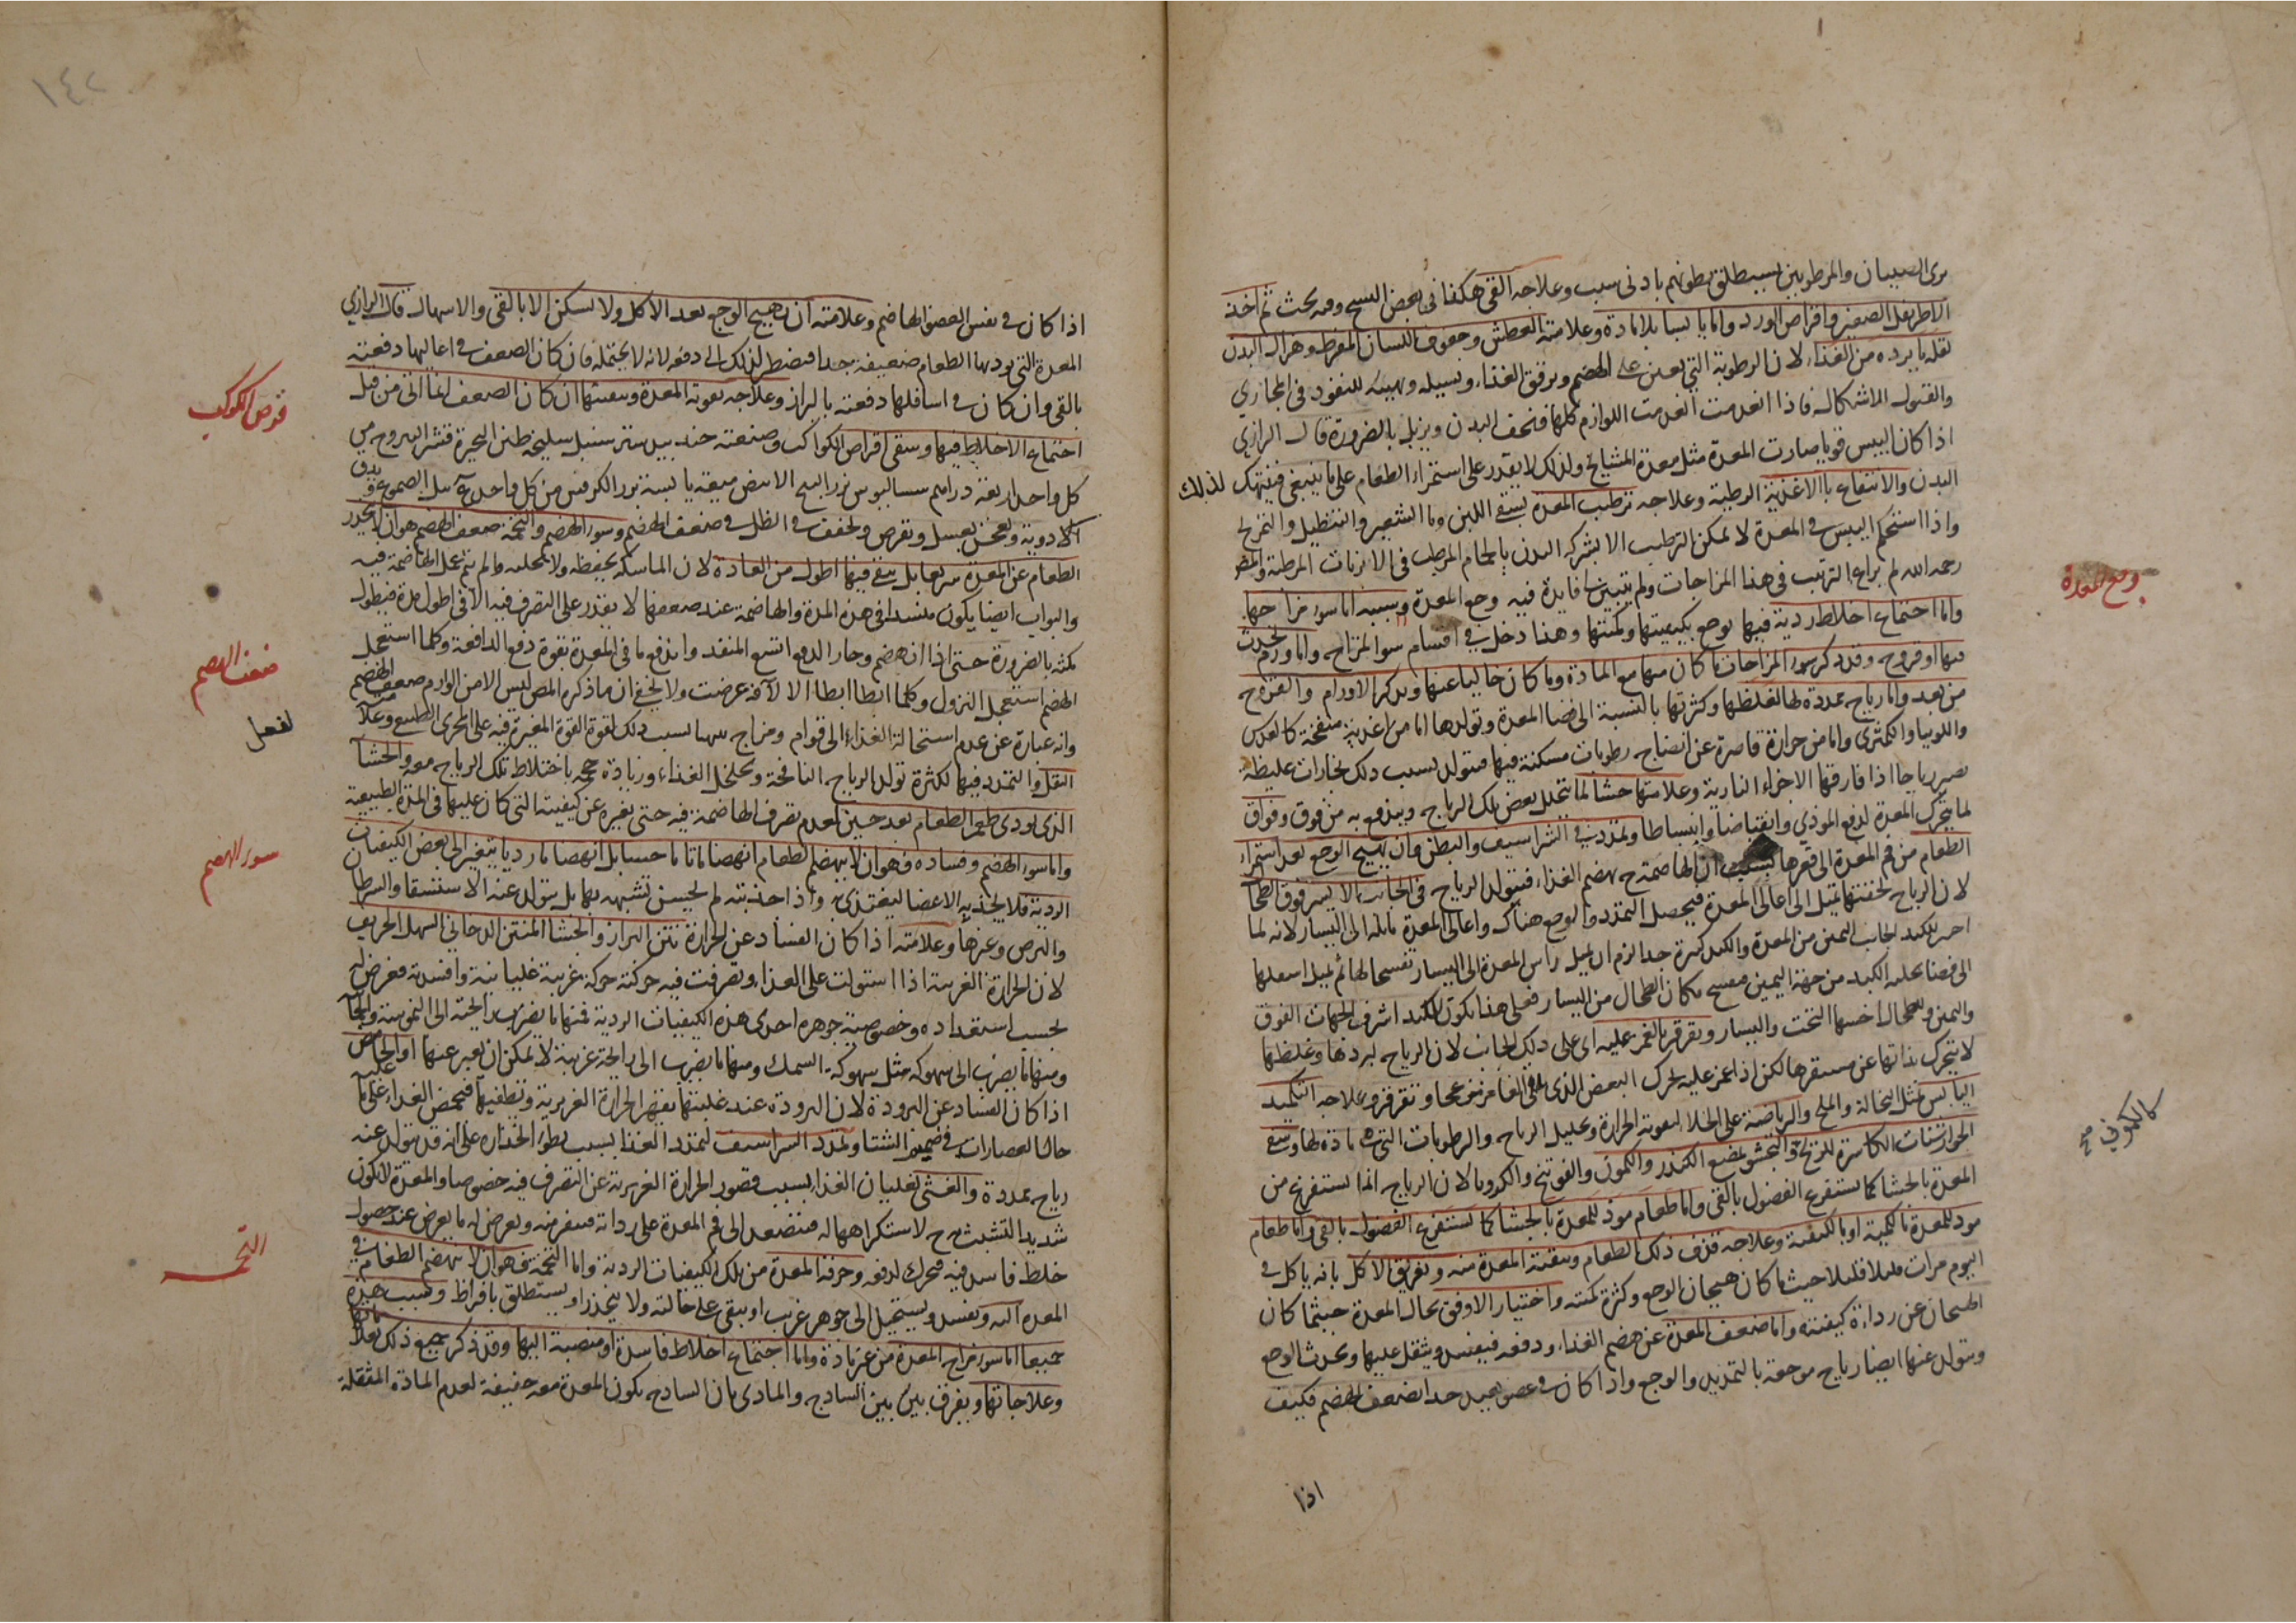 يرى الصبيان والمرطوبين يستطلق بطونهم بادنى سبب وعلاجه القى هكذا فى بعض النسخ وفيه بحث ثم اخذ
الاطريفل الصغير واقراص الورد واما يابسا بلا مادة وعلامته العطش وجفوف اللسان المفرط وهزال البدن
لقلة ما يرده من الغذاء لان الرطوبة التى تعين على الهضم وترقق الغذاء وتسيله وتهيئه للنفوذ فى المجارى
والقبول للاشكال فاذا انعدمت انعدمت اللوازم كلها فنحف البدن ويزبل بالضرورة قال الرازي
اذا كان اليبس قويا صارت المعدة مثل معدة المشايخ ولذلك لا يقدر على استمراء الطعام على ما ينبغى فينهك لذلك
البدن والانتفاع بالاغذية الرطبة وعلاجه ترطيب المعدة بسقى اللبن وما الشعير والتنطيل والتمريخ
واذا استحكم اليبس فى المعدة لا يمكن الترطيب الا بشركة البدن بالحمام المرطب فى الابزنات المرطبة والمص
رحمه الله لم يراع الترتيب فى هذا المزاجات ولم يتبين فايدة فيه وجع المعدة وسببه اما سوء مزاجها
واما اجتماع اخلاط ردية فيها يوجع بكيفيتها وكميتها وهذا دخل فى اقسام سوا المزاج واما ورم يحدث
فيها او قروح وقد ذكر سوء المزاجات ما كان منها مع المادة وما كان خاليا عنها وتذكر الاورام والقروح
من بعد واما رياح ممددة لها لغلظها وكثرتها بالنسبة الى فضا المعدة وتولدها اما من اغذية منفخة كالعدس
واللوبيا والكمثرى واما من حرارة قاصرة عن انضاج رطوبات مسكنة فيها فيتولد بسبب ذلك بخارات غليظة
يصير رياحا اذا فارقها الاجزاء النارية وعلامتها جشا لما يتحلل بعض تلك الرياح ويندفع به من فوق وفواق
لما يتحرك المعدة لدفع الموذي وانقباضا وانبساطا وتمدد فى الشراسيف والبطن فان يهيج الوجع بعد استمراء
الطعام من فم المعدة الى قعرها بسبب ان الهاضمة ح يهضم الغذاء فيتولد الرياح فى الجانب الايسر فوق الطحا
لان الرياح لخفتها يميل الى اعالى المعدة فيحصل التمدد والوجع هناك واعالى المعدة مايلة الى اليسار لانه لما
اجر للكبد الجانب اليمين من المعدة والكبد كبيرة جدا لزم ان يميل راس المعدة الى اليسار تفسحا لها ثم يميل اسفلها
الى فضا يخليه الكبد من جهة اليمين مفسح مكان الطحال من اليسار فعلى هذا يكون للكبد اشرف الجهات الفوق
واليمين وللطحال اخسها التحت واليسار ويقرقر بالغمز عليه اى على ذلك الجانب لان الرياح لبردها وغلظها
لا يتحرك بذاتها عن مستقرها لكن اذا غمز عليه يحرك البعض الذى لاقى الغامز تموجا وتقرقر وعلاجه التكميد
اليابس بمثل النخالة والملح والرياضة على الخلا لتقوية الحرارة وتحليل الرياح والرطوبات التى هى مادة لها وسقى
الجوارشنات الكاسرة للريح والتجشو بمضغ الكندر والكمون والفوتنج والكرويا لان الرياح انما يستفرغ من
المعدة بالجشا كما يستفرغ الفضول بالقى واما طعام موذ للمعدة بالجشا كما يستفرغ الفضول بالقى واما طعام
موذ للمعدة بالكمية او بالكيفية وعلاجه قذف ذلك الطعام وتنقية المعدة منه وتفريق الاكل بانه ياكل فى
اليوم مرات قليلا قليلا حيث ما كان هيجان الوجع وكثرة كميته واختيار الاوفق بحال المعدة حيثما كان
الهيجان عن رداءة كيفيته واما ضعف المعدة عن هضم الغذاء ودفعه فيفسد ويثقل عليها ويحدث الوجع
ويتولد عنها ايضا رياح موجعة بالتمديد والوجع واذا كان فى عضو بعيد حدا يضعف الهضم فكيف
اذا
وجع المعدة
كالكمونى صح
١٤٢
اذا كان فى نفس العضو الهاضم وعلامته ان يهيج الوجع بعد الاكل ولا يسكن الا بالقى والاسهال قال الرازي
المعدة التى يوذيها الطعام ضعيفة جدا فيضطر لذلك الى دفعه لانه لا يحتمله فان كان الضعف فى اعاليها دفعته
بالقى وان كان فى اسافلها دفعته بالبراز وعلاجه تقوية المعدة وتنقيتها ان كان الضعف انما اتى من قبل
اجتماع الاخلاط فيها وسقى اقراص الكواكب وصنعته جندبيدستر سنبل سليخة طين البحيرة قشر اليبروح من
كل واحد اربعة دراهم سساليوس بزر البنج الابيض ميعة يابسة بزر الكرفس من كل واحد يبل الصموغ ويدق
الادوية ويعجن بعسل ويقرص ويجفف فى الظل فى ضعف الهضم وسوء الهضم والتخمة ضعف الهضم هو ان لا ينحدر
الطعام عن المعدة سريعا بل يبقى فيها اطول من العادة لان الماسكة يحفظه ولا يخليه ما لم يتم عمل الهاضمة فيه
والبواب ايضا يكون منسدا فى هذه المدة والهاضمة عند ضعفها لا يقدر على التصرف فيه الا فى اطول مدة فيطول
مكثه بالضرورة حتى اذا انهضم وحان الدفع اتسع المنفذ واندفع ما فى المعدة بقوة دفع الدافعة وكلما استعجل
الهضم استعجل النزول وكلما ابطا ابطا الا لآفة عرضت ولا يخفى ان ما ذكره المص ليس الا من لوازم ضعف الهضم
وانه عبارة عن عدم استحالة الغذاء الى قوام ومزاج يتهيا بسبب ذلك لقوة القوة المغيرة فيه على المجرى الطبيعى وعلامته
الثقل والتمدد فيها لكثرة تولد الرياح النافخة وتخلخل الغذاء وزيادة حجمه باختلاط تلك الرياح معه والجشا
الذى يودى طعم الطعام بعد حين لعدم تصرف الهاضمة فيه حتى يغيره عن كيفيته التى كان عليها فى المدة الطبيعية
واما سوء الهضم وفساده فهو ان لا ينهضم الطعام انهضاما تاما حسنا بل انهضاما رديا يتغير الى بعض الكيفيات
الردية فلا يجذبه الاعضا ليغتذى به واذا جذبته لم يحسن تشبهه بها بل يتولد عنه الاستسقا والسرطان
والبرص وغيرها وعلامته اذا كان الفساد عن الحرارة نتن البراز والجشا المنتن الدخانى السهك الحريف
لان الحرارة الغريبة اذا استولت على الغذاء وتصرفت فيه حركته حركة غريبة غليانية وافسدته فعرض له
بحسب استعداده وخصوصية جوهره احدى هذه الكيفيات الردية فمنها ما يضرب رايحته الى الزهومة والحما
ومنها ما يضرب الى سهوكة مثل سهوكة السمك ومنها ما يضرب الى رايحة غريبة لا يمكن ان يعبر عنها او الحامض
اذا كان الفساد عن البرودة لان البرودة عند غلبتها تقهر الحرارة الغريزية وتطفيها فيحمض الغذاء على ما عليه
حال العصارات فى صميم الشتا وتمدد الشراسيف لتمدد الغذا بسبب بطوء انحداره على انه قد يتولد عنه
رياح ممددة والغشى لغليان الغذاء بسبب قصور الحرارة الغريزية عن التصرف فيه خصوصا والمعدة لا يكون
شديد التشبث به ح لاستكراهها له فيتصعد الى فم المعدة على رداته فينفر منه ويعرض له ما يعرض عند حصول
خلط فاسد فيه فتحرك لدفعه وحرقة المعدة من تلك الكيفيات الردية واما التخمة فهو ان لا ينهضم الطعام فى
المعدة البتة ويفسد ويستحيل الى جوهر غريب او يبقى على حالته ولا ينحدر او يستطلق بافراط وسبب هذه
جميعا اما سوء مزاج المعدة من غير مادة واما اجتماع اخلاط فاسدة او منصبة اليها وقد ذكر جميع ذلك بعلاماتها
وعلاجاتها ويفرق بين بين الساذج والمادى بان الساذج يكون المعدة معه خفيفة لعدم المادة المثقلة
قرص الكوكب
ضعف الهضم
لفعل
سوء الهضم
التخمة